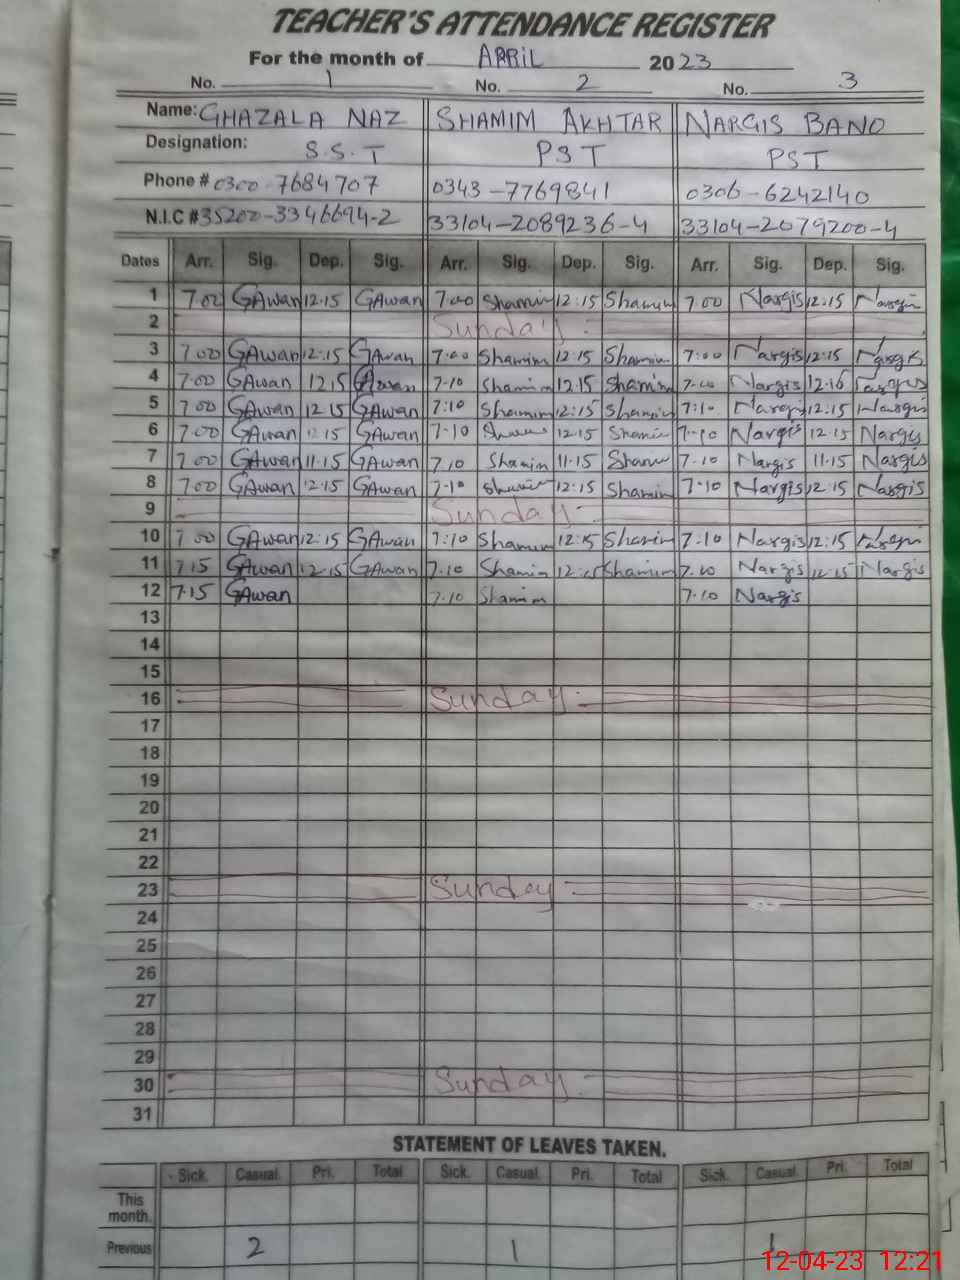 TEACHER'S ATTENDANCE REGISTER
For the month of APRIL 2023
No. 1 No. 2 No. 3
Name: GHAZALA NAZ SHAMIM AKHTAR NARGIS BANO
Designation: S.S.T PST PST
Phone # 0300-7684707 0343-7769841 0306-6242140
N.I.C # 35200-3346694-2 33104-2089236-4 33104-2079200-4
Dates Arr. Sig. Dep. Sig. Arr. Sig. Dep. Sig. Arr. Sig. Dep. Sig.
1 7.00 GAwan 12.15 GAwan 7.00 Shamim 12:15 Shamim 7.00 Nargis 12:15 Nargis
2 Sunday:
3 7.00 GAwan 12:15 GAwan 7:00 Shamim 12:15 Shamim 7:00 Nargis 12:15 Nargis
4 7.00 GAwan 12.15 GAwan 7-10 Shamim 12.15 Shamim Nargis Nargis
5 7.00 GAwan 12.15 GAwan 7:10 Shamim 12:15 Shamim 7:10 Nargis 12:15 Nargis
6 7.00 GAwan 12.15 GAwan 7-10 Shamim 12.15 Shamim 7-10 Nargis 12.15 Nargis
7 7.00 GAwan 11.15 GAwan 7.10 Shamim 11.15 Shamim 7.10 Nargis 11.15 Nargis
8 7.00 GAwan 12.15 GAwan 7-10 Shamim 12:15 Shamim 7.10 Nargis 12:15 Nargis
9 Sunday:
10 7.00 GAwan 12:15 GAwan 7:10 Shamim 12:15 Shamim 7:10 Nargis 12:15 Nargis
11 7.15 GAwan 12.15 GAwan 7.10 Shamim 12:15 Shamim Nargis 12.15 Nargis
12 7.15 GAwan 7.10 Shamim 7.10 Nargis
13
14
15
16 Sunday:
17
18
19
20
21
22
23 Sunday:
24
25
26
27
28
29
30 Sunday:
31
STATEMENT OF LEAVES TAKEN.
Sick. Casual. Pri. Total Sick. Casual. Pri. Total Sick. Casual. Pri. Total
This
month.
Previous 2 1 1
12-04-23 12:21